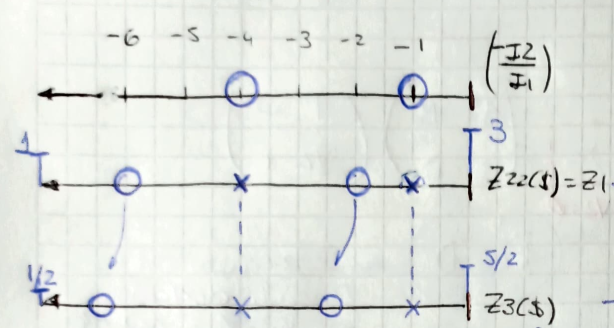 -6 -5 -4 -3 -2 -1 (-I2/I1)
1 3
Z22($)=Z1
1/2 5/2
Z3($)